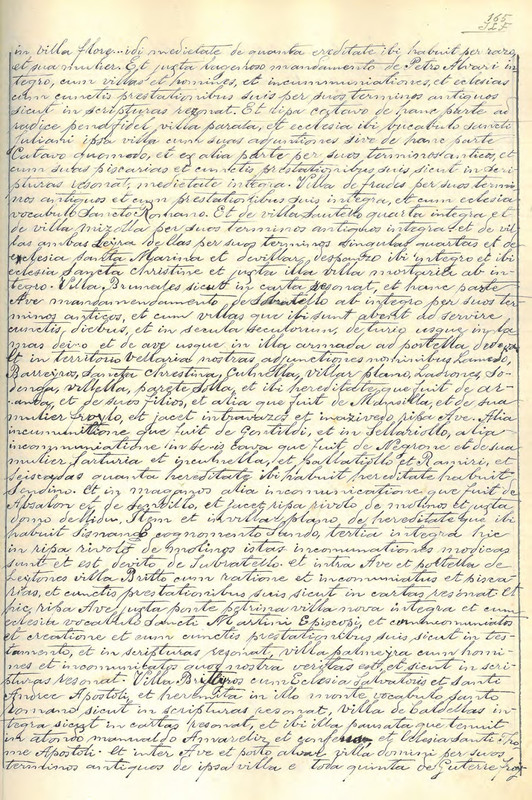 165
in villa flore... ibi medietate de quanta ereditate ibi habuit per zara
et sua mulier. Et juxta Lagenoso mandamento de Petro Alvari in
tegro, cum villas et homines, et incummuniationes, et eclesias
cum cunctis prestationibus suis per suos terminos antiquos
sicut in scripturas resonat. Et ripa catavo de hanc parte ad
radice penafidel, villa parata, et ecclesia ibi vocabulo sancti
Juliani ipsa villa cum suas adjuntiones sive de hanc parte
Catavo quomodo, et ex alia parte per suos terminos antico, et
cum suas piscarias et cunctis prestationibus suis sicut in scri-
pturas resonat, medietate integra. Villa de frades per suos termi-
nos antiquos et cum prestationibus suis integra, et cum eclesia
vocabulo Sancto Romano. Et de villa Sautello quarta integra et
de villa mizella per suos terminos antiquos integra et de vil-
las ambas Leira dellas per suos terminos singulas quartas et de
eclesia santta Marina et de villar, despanzo ibi integro et ibi
eclesia Sancta Christine et juxta illa villa mortaria ab in-
tegro. Villa, Brunales sicut in carta resonat, et hanc parte
Ave mandamendamento, de Sobratello ab integro per suos ter-
minos anticos, et cum villas que ibi sunt abent ad servire
cunctis, diebus, et in secula seculorum, de turio usque in la
mas de et de ave usque in illa armada ad portella de
Et in territorio Vellaria nostras adjunctiones nominibus
Barreiros, Sancta Chrestina, Cubnella, villar plano, Ladrones, So-
denga, villella, parete solla, et ibi hereditate que fuit de ar-
et de suos filios, et alia que fuit de Mansilla, et de sua
mulier froylo, et jacet in travazos et in azivego, ripa Ave. Alia
incumunitione que fuit de Gontildi, et in Sellariolo, alia
incommuniatione in se-is cova que fuit de Negrone et de sua
mulier Sarturia et in cubnella, et Galbatiollo et Ramiri, et
seiscasas quanta hereditate ibi habuit hereditate habuit
Sendino. Et in maganos alia incomunicatione que fuit de
Absalon et de et jacet ripa rivolo de molinos et juxta
domo de Vidu. Item et in villar plano, de hereditate que ibi
habuit Sisnando cognomento Sando, tertia integra hic
in ripa rivolo de molinos istas incomuniationes modicas
sunt et est devito de Subratello. et intra Ave et portella de
Leytones villa Britto cum ratione et incomuniatus et pisca-
rias, et cunctis prestationibus suis sicut in cartas resonat. Et
hic ripa Ave, juxta ponte petrina villa nova integra et cum
eclesia vocabulo Sancti Martini Episcopi, et comuniatos
et creatione et cum cunctis prestationibus suis sicut in tes-
tamento, et in scripturas resonat, villa palmeyra cum homi-
nes et incomunicatos quos nostra veritas est, et sicut in scri-
pturas resonat. Villa cum Eclesia Salvatoris et Santi
Andree Apostoli, et heremita in illo monte vocabulo santo
romano sicut in scripturas resonat, villa de Caldellas in-
tegra sicut in cartas resonat, et ibi illa pausata que tenuit
in atondo manualdo Annareliz et et Eclesia Santi Tho
me Apostoli. et inter Ave et porto alvar villa domini per suos
terminos antiquos de ipsa villa e toda quinta de Guterre